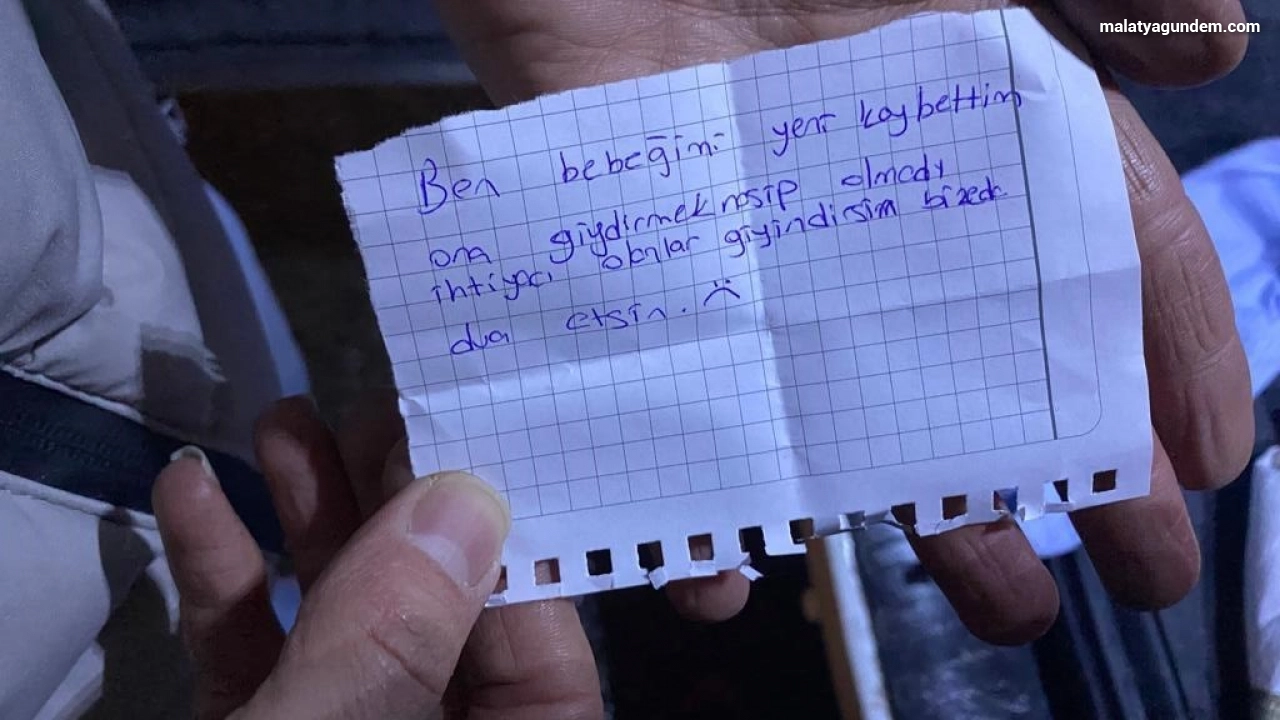 malatyagundem.com
Ben bebeğimi yeni kaybettim
ona giydirmek nasip olmadı
ihtiyacı olanlar giyindirsin bizede
dua etsin. :(